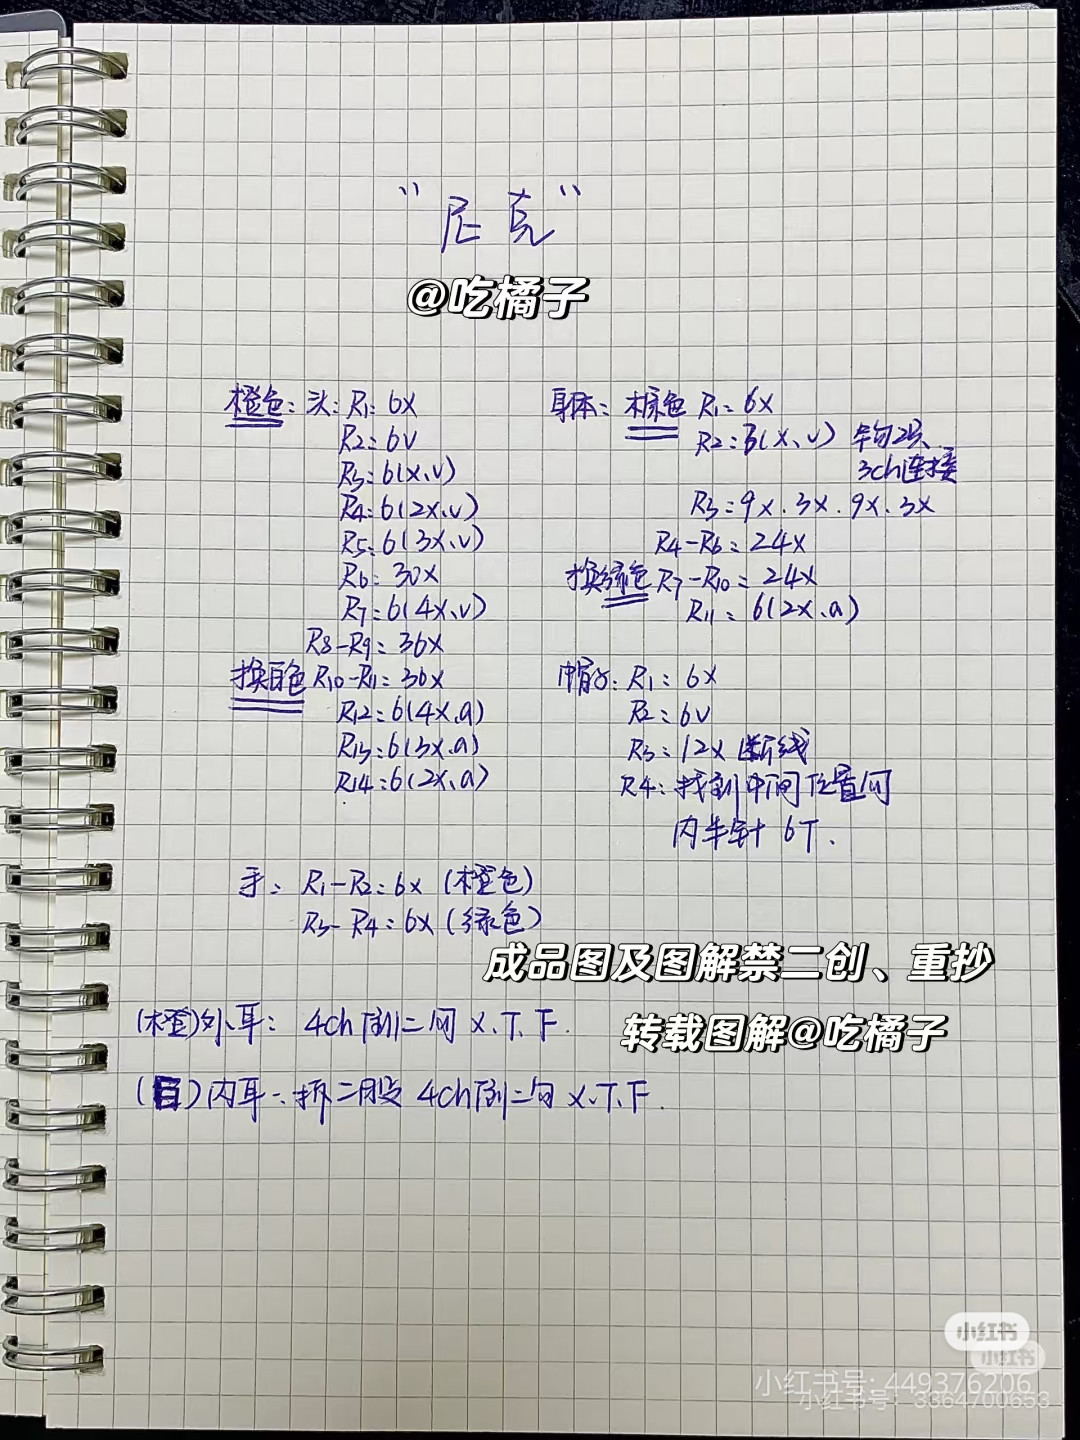 “尼克”
@吃橘子
橙色：头：R1：6X
R2：6V
R3：6(X、V)
R4：6(2X、V)
R5：6(3X、V)
R6：30X
R7：6(4X、V)
R8-R9：36X
换白色 R10-R11：36X
R12：6(4X、A)
R13：6(3X、A)
R14：6(2X、A)
身体：棕色 R1：6X
R2：3(X、V) 钩2只、
3ch连接
R3：9X . 3X . 9X . 3X
R4-R6：24X
换绿色 R7-R10：24X
R11：6(2X、A)
帽子：R1：6X
R2：6V
R3：12X 断线
R4：找到中间位置向
内半针 6T .
手：R1-R2：6X (橙色)
R3-R4：6X (绿色)
成品图及图解禁二创、重抄
转载图解@吃橘子
(橙)外耳：4ch 倒二勾 X、T、F .
(白)内耳：拆二股 4ch 倒二勾 X、T、F .
小红书
小红书
小红书号：449376206
小红书号：3364700653